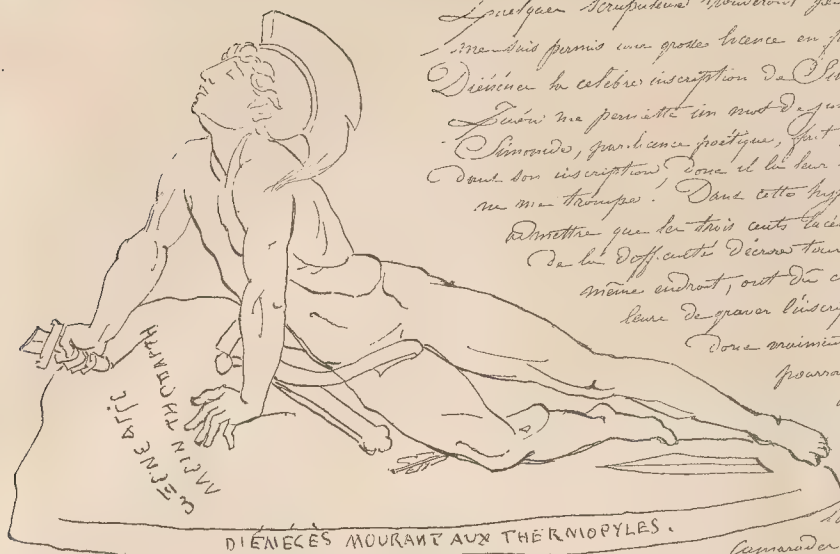 quelques scrupuleux trouveront
me suis permis une grosse licence en
Diénécès la célèbre inscription de
qu'on me permette un mot de
Simonide, par licence poétique, fait
dans son inscription, donc il la leur
ne me trompe. Dans cette hyp
admettre que les trois cents lacé
de la difficulté d'écrire tous
même endroit, ont dû c
leure de graver l'inscri
donc vraiment
pourra
DIÉNÉCÈS MOURANT AUX THERMOPYLES.
Camarades